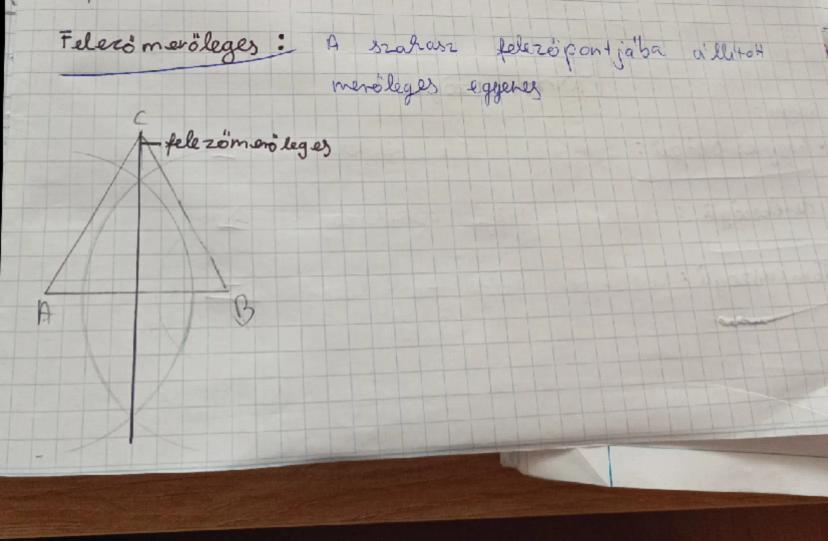 Felezőmerőleges: A szakasz felezőpontjába állított
merőleges egyenes
C
felezőmerőleges
A
B